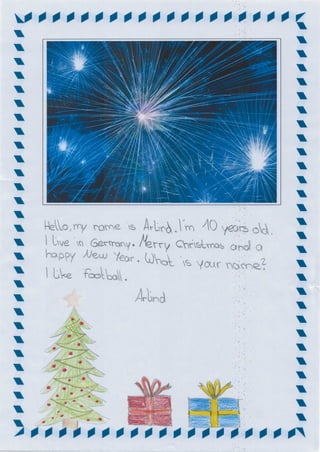 Hello, my name is Arlind. I'm 10 years old.
I live in Germany. Merry Christmas and a
happy New Year. What is your name?
I like football.
Arlind